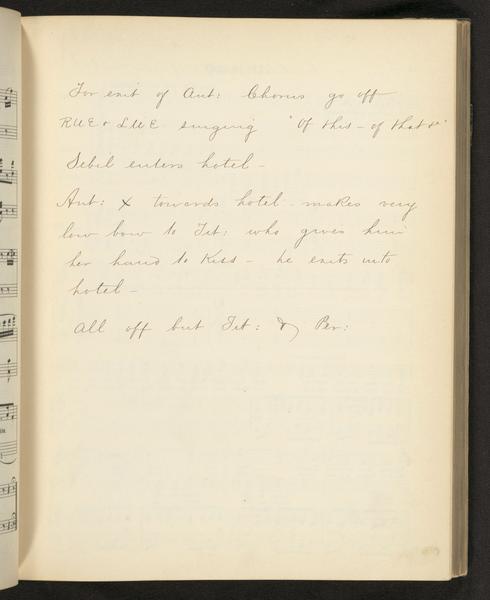 For exit of Ant: Chorus go off
RUE & LUE singing "Of this – of that &c"
Sebil enters hotel –
Ant: X towards hotel – makes very
low bow to Tit: who gives him
her hand to kiss – he exits into
hotel –
All off but Tit: & Per: